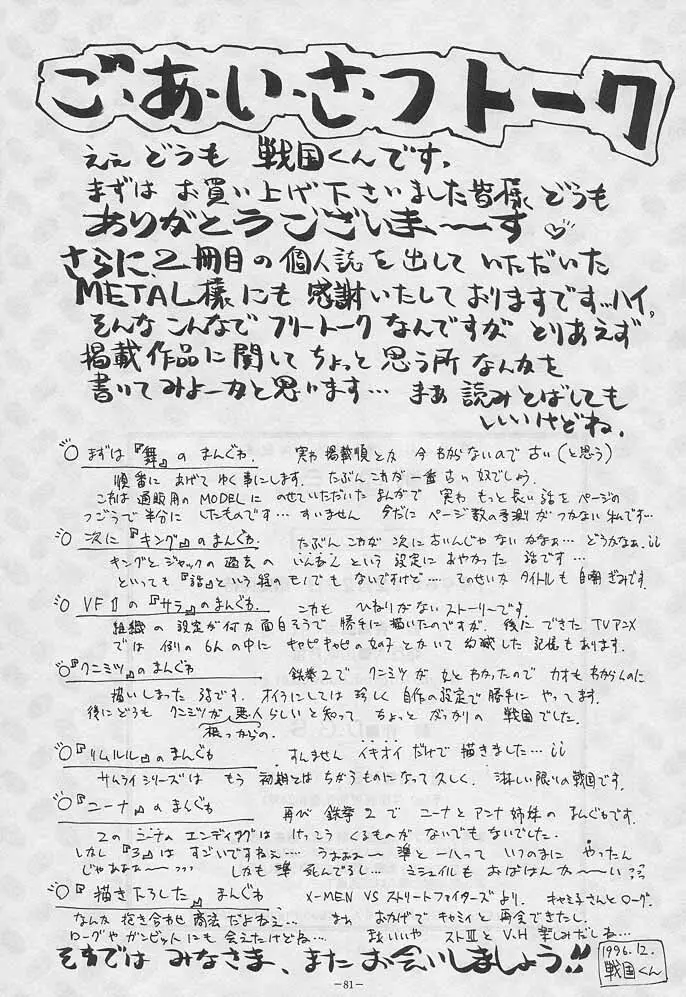 ご・あ・い・さ・つトーク
ええ どうも 戦国くんです。
まずは お買い上げ下さいました皆様 どうも
ありがとうございま〜〜す♡
さらに、2冊目の個人誌を出していただいた
METAL様にも感謝いたしておりますです…ハイ。
そんなこんなでフリートークなんですが とりあえず
掲載作品に関してちょっと思う所なんかを
書いてみよーかと思います… まあ 読みとばしても
いいけどね。
○まずは『舞』のまんがね. 実わ掲載順とか 今わからないので古い(と思う)
順番に あげてゆく事にします. たぶんこれが一番古い奴でしょう.
これは通販用のMODELに のせていただいたまんがで 実わ もっと長い話をページの
つごうで半分に したものです… すいません 今だに ページ数の予測がつかない私です…
○次に『キング』のまんがね. たぶんこれが次に古いんじゃないかなぁ… どうかなぁ.
キングとジャックの過去の いんねん という 設定に あやかった 話です…
といっても『話』という程のモノでもないですけど… そのせいか タイトルも自嘲ぎみです.
○VFIIの『サラ』のまんがね. これも ひねりがないストーリーです.
組織の設定が何か面白そうで 勝手に描いたのですが. 後にできたTVアニメ
では 例の6人の中に キャピキャピの女の子とかいて 幻滅した記憶もあります.
○『クニミツ』のまんがね 鉄拳2で クニミツが 女とわかったので カオもわからんのに
描いしまった 話です. オイラにしては 珍しく 自作の設定で勝手に やってます.
後にどうも クニミツが 悪人らしいと知って ちょっと がっかりの 戦国でした.
根っからの.
○『リムルル』のまんがね すんません イキオイだけで 描きました…
サムライシリーズは もう 初期とは ちがうものになって久しく. 淋しい限りの戦国です.
○『ニーナ』のまんがね 再び 鉄拳2で ニーナとアンナ姉妹の まんがです.
2の ニーナ エンディングは けっこう くるものが ないでもないでした.
しかし『3』は すごいですねぇ… うおぉぉ〜 準と一八って いつのまに やったん
じゃああぁ〜??? しかも準 死んでるし… ミシェイルも おばはんか〜〜い??
○『描き下ろした』まんがね X-MEN VS ストリートファイターズより. キャミ子さんとローグ.
なんか 抱き合わせ商法だよねぇ… まぁ おかげで キャミィと 再会できたし.
ローグや ガンビットにも 会えたけどね… まぁいいや ストIIIと V・H 楽しみだしね…
それでは みなさま、また お会いしましょう!!
1996.12.
戦国くん
－81－